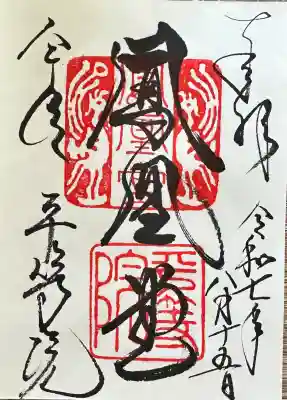 奉拝
令和七年
八月十五日
鳳凰堂
平等院